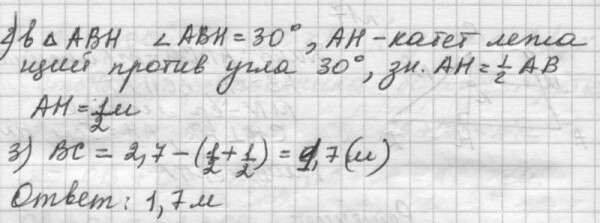 2) в △ ABH ∠ABH = 30°, AH - катет лежа
щий против угла 30°, зн. AH = 1/2 AB
AH = 1/2 м
3) BC = 2,7 - (1/2 + 1/2) = 1,7 (м)
Ответ: 1,7 м